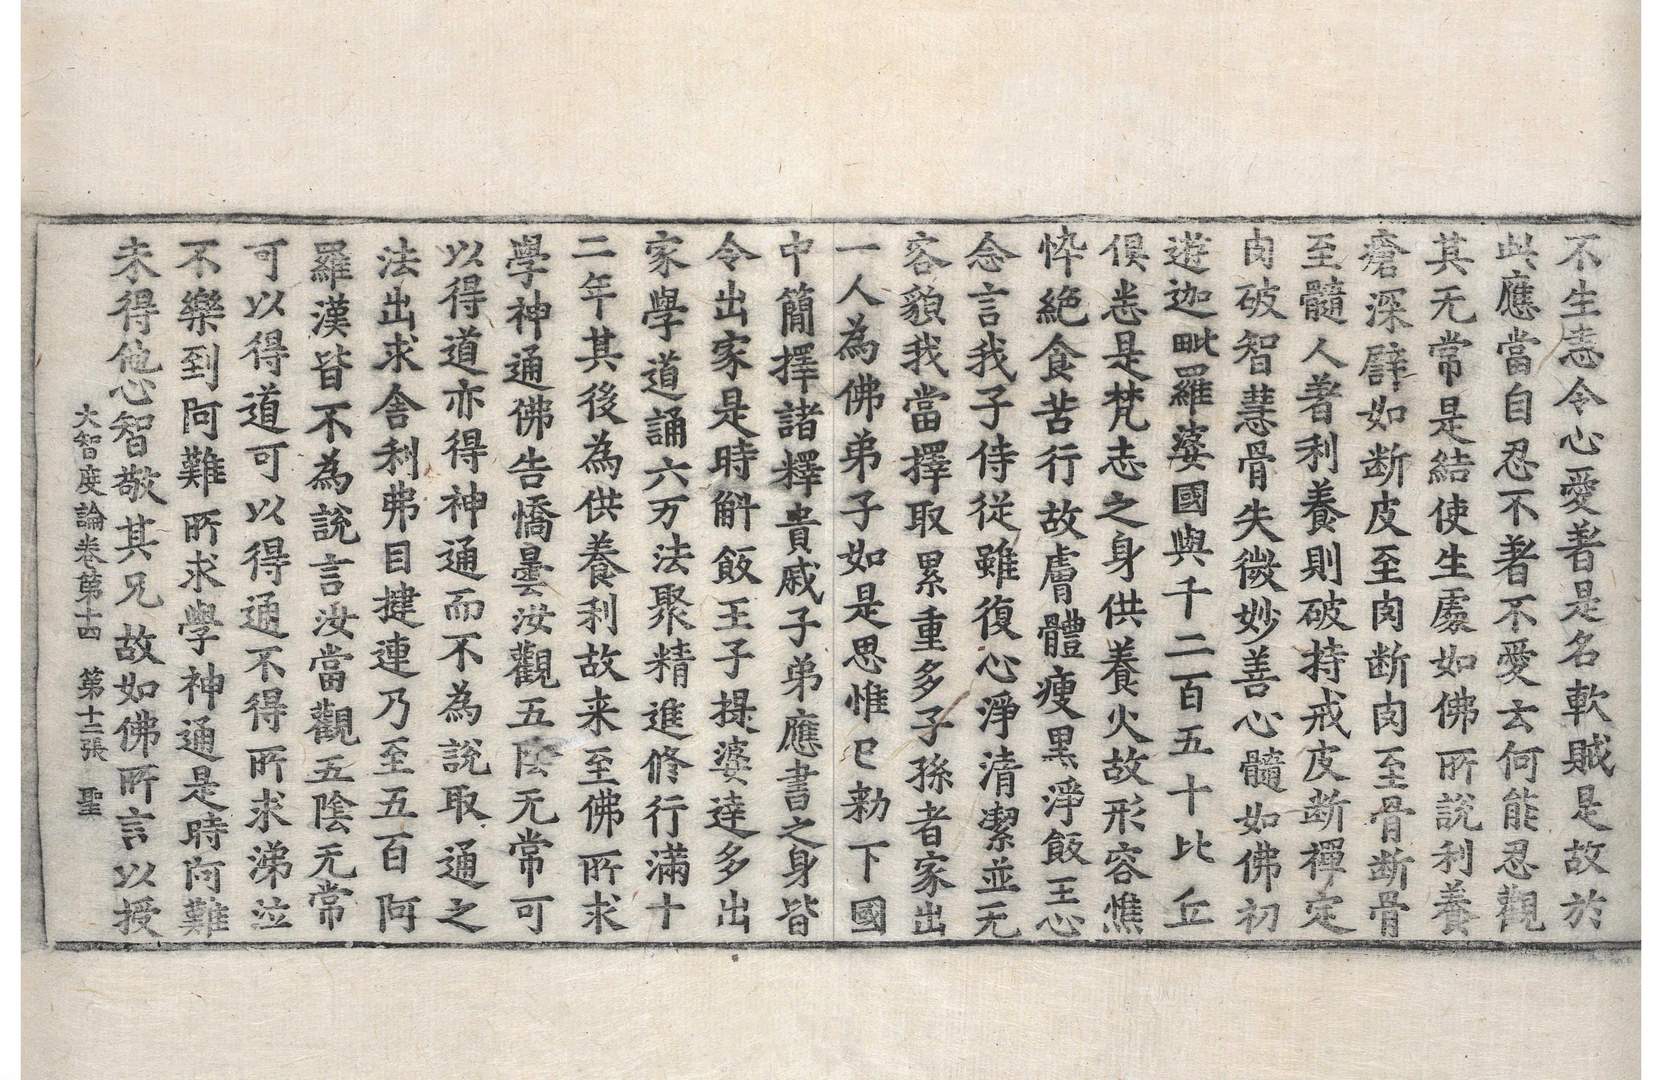 不生恚令心愛著是名軟賊是故於
此應當自忍不著不愛云何能忍觀
其无常是結使生處如佛所說利養
瘡深譬如断皮至肉断肉至骨断骨
至髓人著利養則破持戒皮断禪定
肉破智慧骨失微妙善心髓如佛初
遊迦毗羅婆國與千二百五十比丘
俱悉是梵志之身供養火故形容憔
悴絕食苦行故膚體瘦黑淨飯王心
念言我子侍從雖復心淨清潔並无
容貌我當擇取累重多子孫者家出
一人為佛弟子如是思惟已勑下國
中簡擇諸釋貴戚子弟應書之身皆
令出家是時斛飯王子提婆達多出
家學道誦六万法聚精進修行滿十
二年其後為供養利故来至佛所求
學神通佛告憍曇汝觀五陰无常可
以得道亦得神通而不為說取通之
法出求舍利弗目揵連乃至五百阿
羅漢皆不為說言汝當觀五陰无常
可以得道可以得通不得所求涕泣
不樂到阿難所求學神通是時阿難
未得他心智敬其兄故如佛所言以授
大智度論卷第十四 第十二張 聖